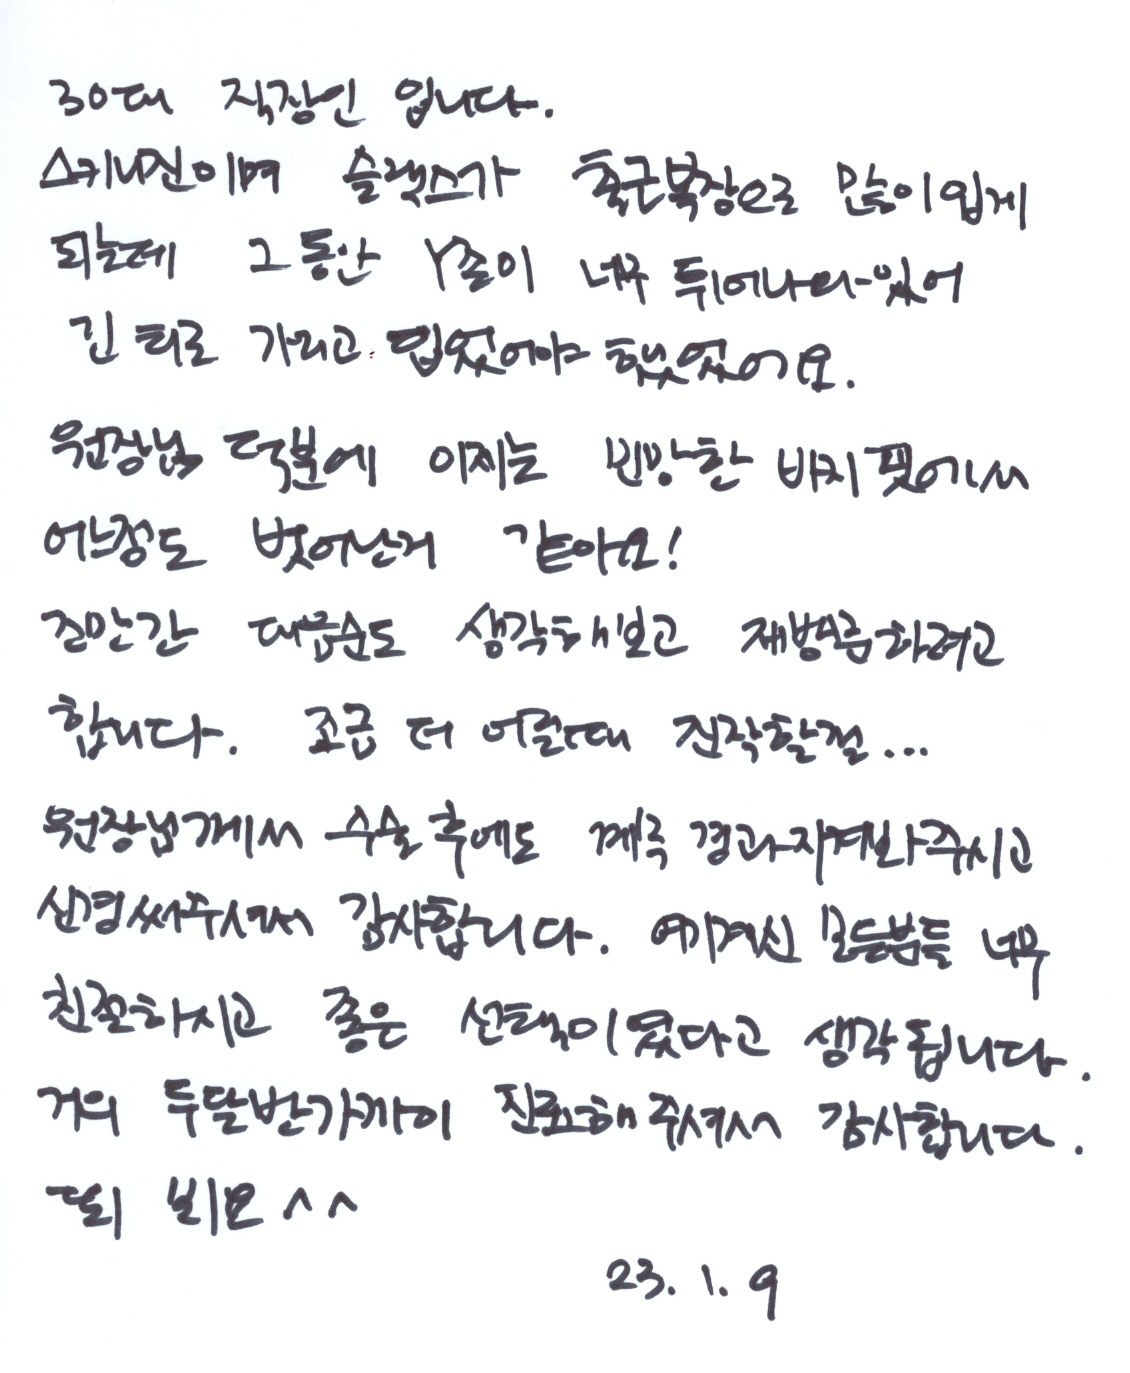 30대 직장인 입니다.
스키니진이며 슬랙스가 출근복장으로 많이 입게
되는데 그동안 Y존이 너무 튀어나와있어
긴 티로 가리고 입었어야 했었어요.
원장님 덕분에 이제는 민망한 바지핏에서
어느정도 벗어난거 같아요!
조만간 대음순도 생각해보고 재방문하려고
합니다. 조금 더 어릴때 진작할걸...
원장님께서 수술 후에도 계속 경과지켜봐주시고
신경써주셔서 감사합니다. 여기계신 모든분들 너무
친절하시고 좋은 선택이였다고 생각됩니다.
거의 두달반가까이 진료해 주셔서 감사합니다.
또 뵈요 ^^
23. 1. 9